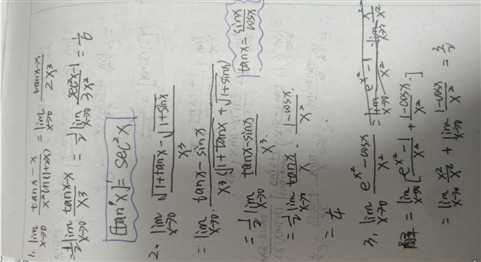 1. lim x→0 (tanx - x)/(x² ln(1+2x)) = lim x→0 (tanx-x)/(2x³)
= 1/2 lim x→0 (tanx-x)/x³ = 1/2 lim x→0 (sec²x-1)/(3x²) = 1/6
(tanx)' = sec²x
2. lim x→0 (√(1+tanx) - √(1+sinx))/x³
= lim x→0 (tanx - sinx)/(x³(√(1+tanx) + √(1+sinx)))
= 1/2 lim x→0 (tanx-sinx)/x³
tanx = sinx/cosx
= 1/2 lim x→0 tanx/x · (1-cosx)/x²
= 1/4
3. lim x→0 (e^x² - cosx)/x²
解= lim x→0 [(e^x² - 1)/x² + (1-cosx)/x²]
= lim x→0 x²/x² + lim x→0 (1-cosx)/x² = 3/2